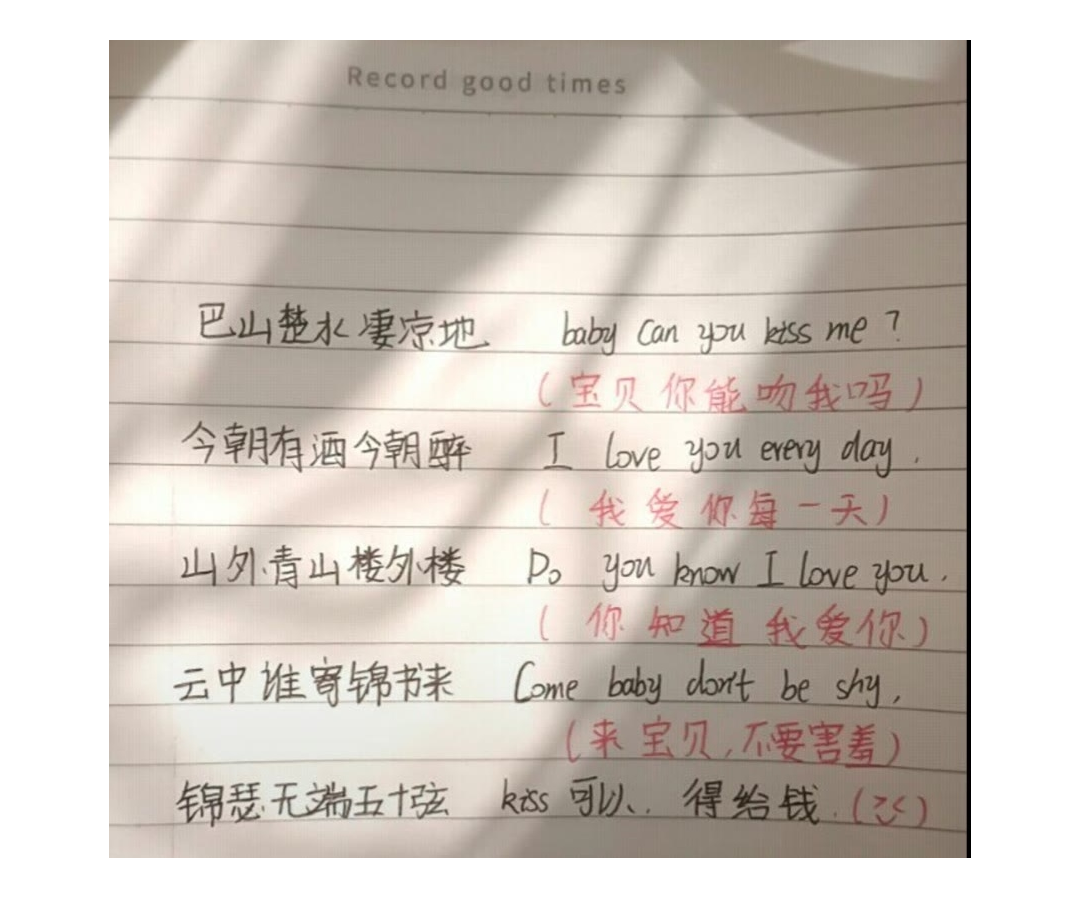 Record good times
巴山楚水凄凉地 baby can you kiss me?
(宝贝你能吻我吗)
今朝有酒今朝醉 I love you every day.
(我爱你每一天)
山外青山楼外楼 Do you know I love you.
(你知道我爱你)
云中谁寄锦书来 Come baby don't be shy,
(来宝贝,不要害羞)
锦瑟无端五十弦 kiss 可以、得给钱.